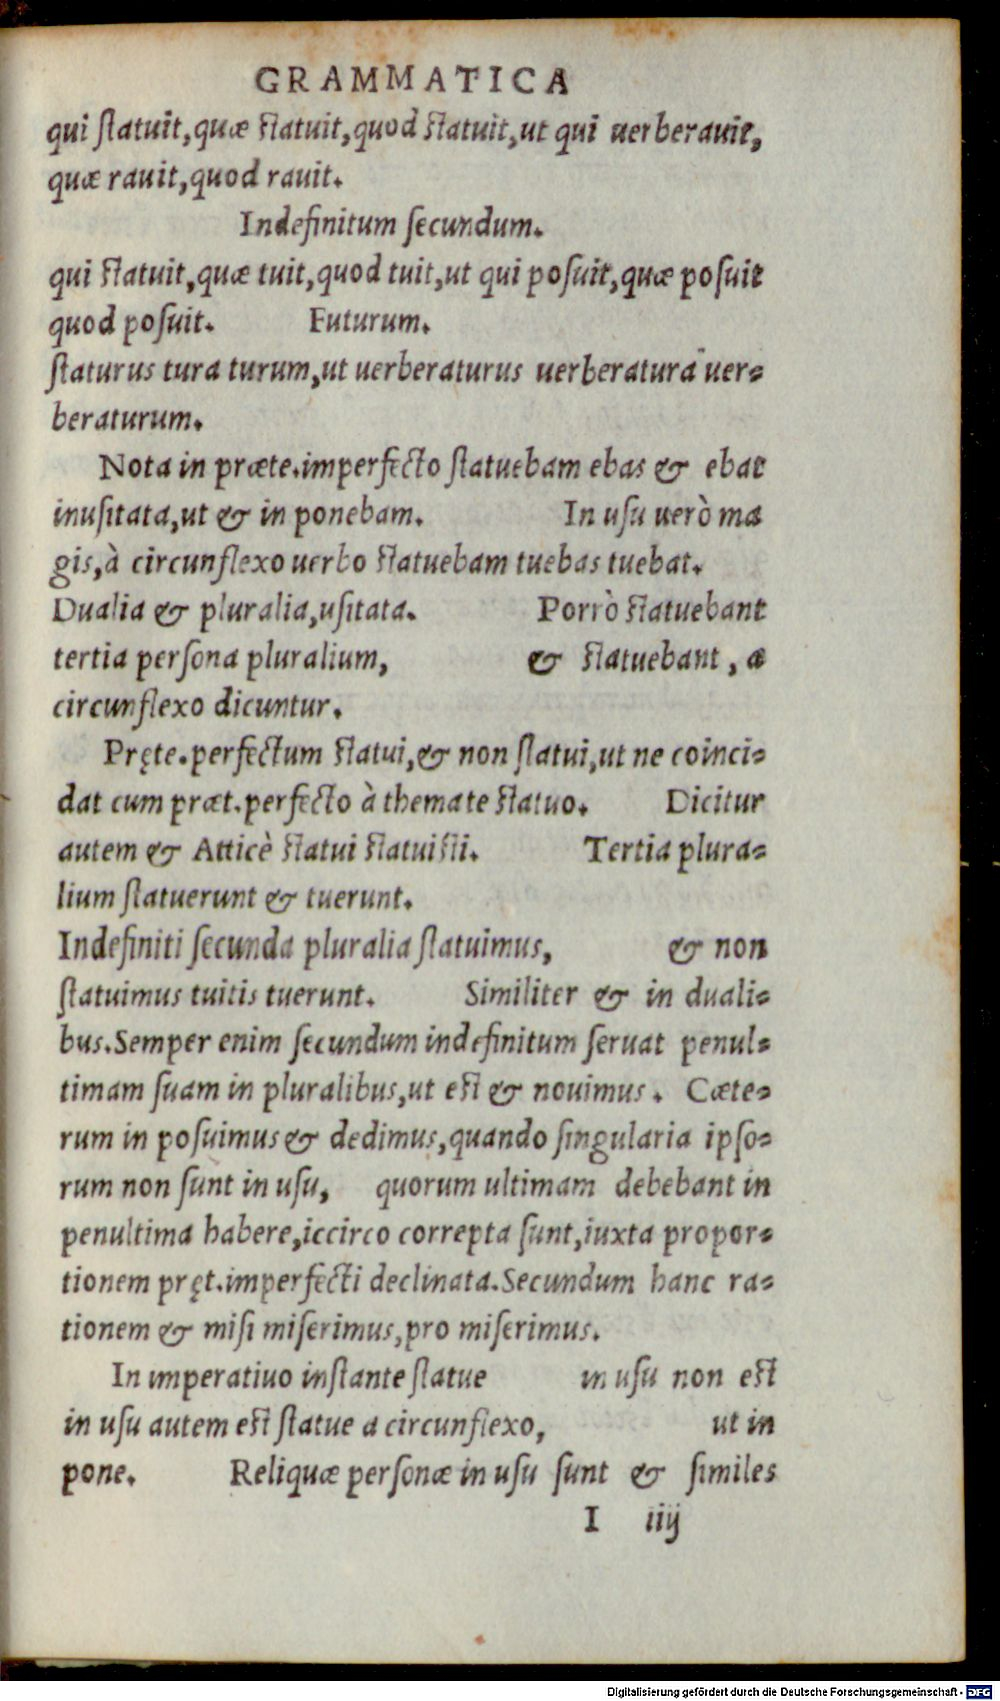 GRAMMATICA
qui ſtatuit,quæ ſtatuit,quod ſtatuit,ut qui uerberauit,
quæ rauit,quod rauit.
Indefinitum ſecundum.
qui ſtatuit,quæ tuit,quod tuit,ut qui poſuit,quæ poſuit
quod poſuit. Futurum.
ſtaturus tura turum,ut uerberaturus uerberatura uer-
beraturum.
Nota in præte.imperfecto ſtatuebam ebas & ebat
inuſitata,ut & in ponebam. In uſu uerò ma
gis,à circunflexo uerbo ſtatuebam tuebas tuebat.
Dualia & pluralia,uſitata. Porrò ſtatuebant
tertia perſona pluralium, & ſtatuebant, a
circunflexo dicuntur.
Pręte.perfectum ſtatui,& non ſtatui,ut ne coinci-
dat cum præt.perfecto à themate ſtatuo. Dicitur
autem & Atticè ſtatui ſtatuiſti. Tertia plura-
lium ſtatuerunt & tuerunt.
Indefiniti ſecunda pluralia ſtatuimus, & non
ſtatuimus tuitis tuerunt. Similiter & in duali-
bus.Semper enim ſecundum indefinitum ſeruat penul-
timam ſuam in pluralibus,ut eſt & nouimus. Cæte-
rum in poſuimus & dedimus,quando ſingularia ipſo-
rum non ſunt in uſu, quorum ultimam debebant in
penultima habere,iccirco correpta ſunt,iuxta propor-
tionem pręt.imperfecti declinata.Secundum hanc ra-
tionem & miſi miſerimus,pro miſerimus.
In imperatiuo inſtante ſtatue in uſu non eſt
in uſu autem eſt ſtatue a circunflexo, ut in
pone. Reliquæ perſonæ in uſu ſunt & ſimiles
I iiij
Digitalisierung gefördert durch die Deutsche Forschungsgemeinschaft - DFG